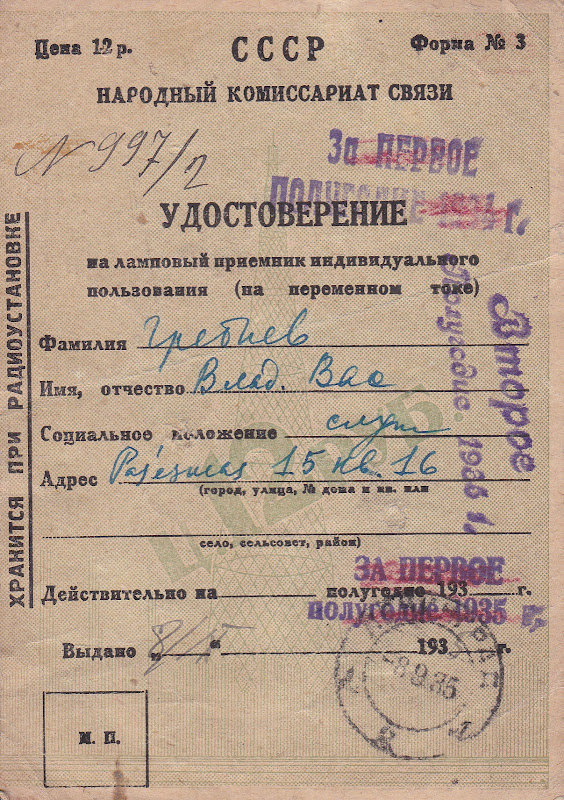 Цена 12 р.
СССР
Форма № 3
НАРОДНЫЙ КОМИССАРИАТ СВЯЗИ
N 997/2
За ПЕРВОЕ
ПОЛУГОДИЕ г.
УДОСТОВЕРЕНИЕ
на ламповый приемник индивидуального
пользования (на переменном токе)
Фамилия Гребнев
Имя, отчество Влад. Вас
Социальное положение служ
Адрес 15 кв. 16
(город, улица, № дома и кв. или
село, сельсовет, район)
Действительно на полугодие 193 г.
ЗА ПЕРВОЕ
полугодие 1935 г.
Выдано „8/IX“ 193 г.
М. П.
ХРАНИТСЯ ПРИ РАДИОУСТАНОВКЕ
Второе
Полугодие. 1935 г.
-8.9.35